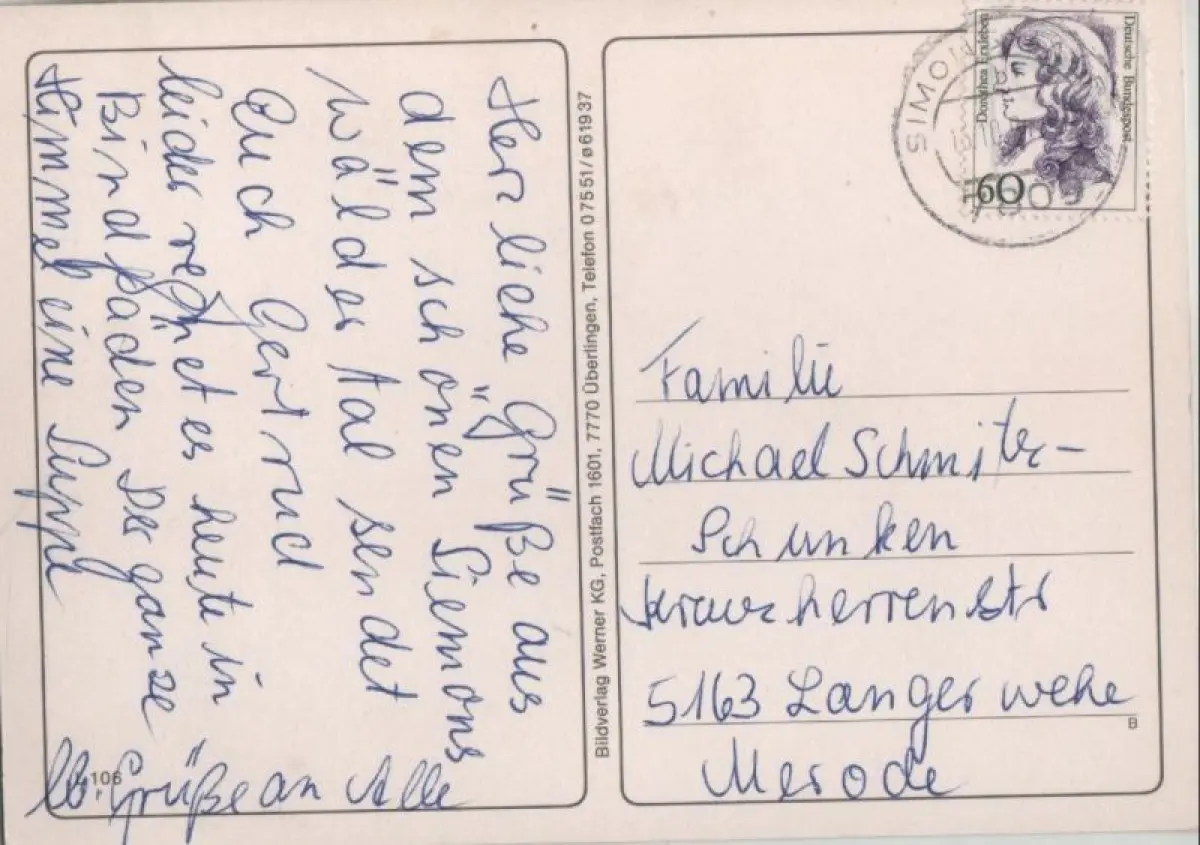 Herzliche Grüße aus
dem schönen Siemons
wälder tal sendet
Euch Gertrud
leider regnet es heute in
Bindfäden Der ganze
Himmel eine Suppe
lb Grüße an Alle
106
Bildverlag Werner KG, Postfach 1601, 7770 Überlingen, Telefon 07551/ø61937
Deutsche Bundespost
Dorothea Erxleben
60
SIMON
Familie
Michael Schmitz-
Schunken
Kreuzherrenstr
5163 Langerwehe
Merode
B